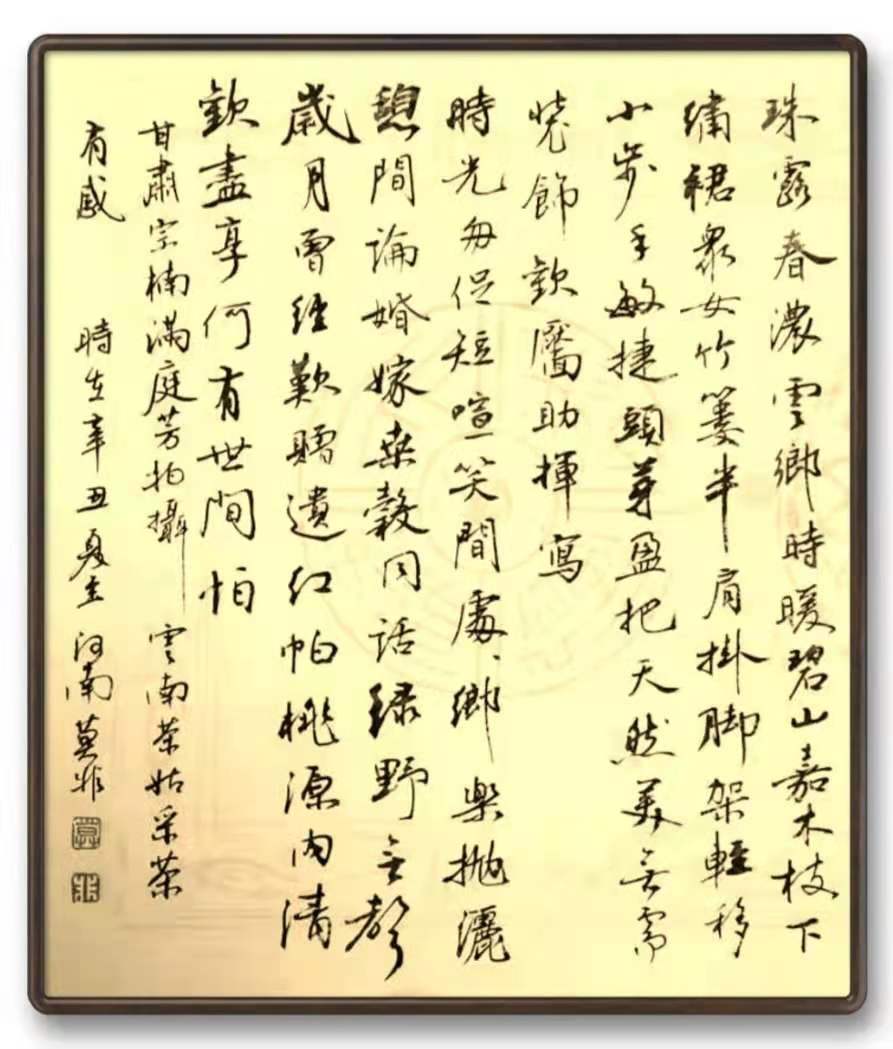 珠露春濃雲鄉時暖碧山嘉木枝下
繡裙衆女竹簍半肩掛脚架輕移
小步手敏捷頭芽盈把天然美無需
裝飾歡靨助揮寫
時光每促短喧笑間處鄉樂拋灑
憩間論婚嫁桑穀同話綠野無聲
歲月曾經歎贈遺紅帕桃源內清
歡盡享何有世間怕
甘肅宗楠滿庭芳拍攝 雲南茶姑采茶
有感 時在辛丑夏至 河南莫非